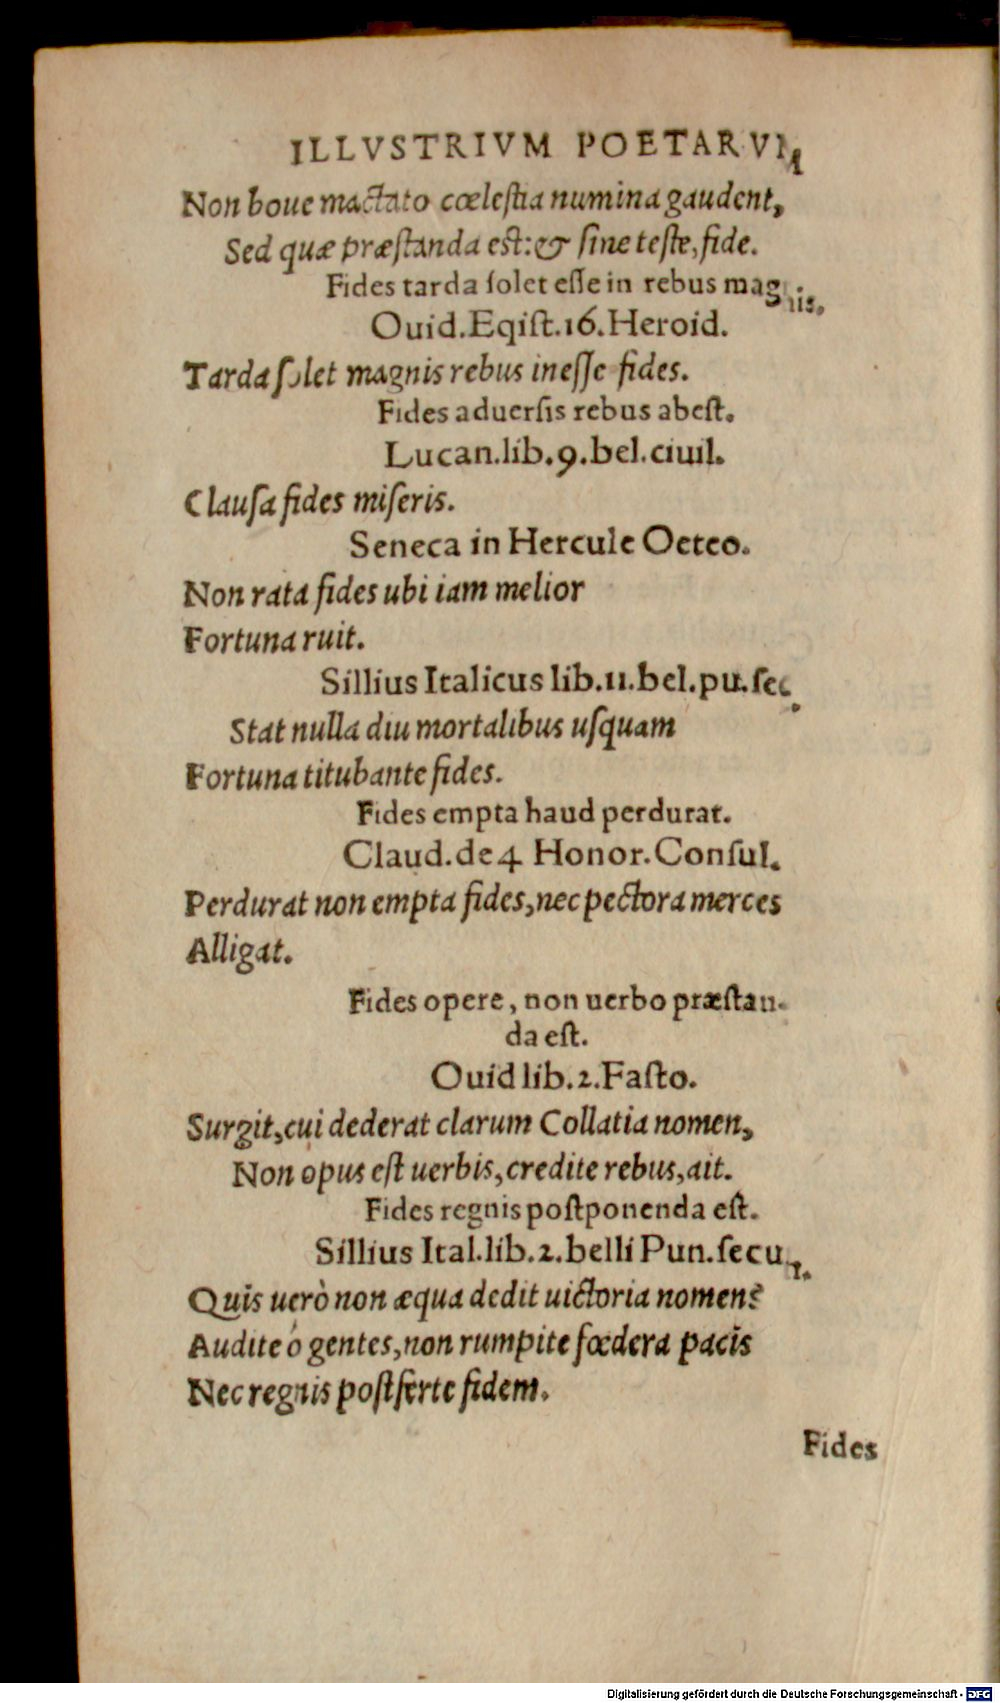 ILLVSTRIVM POETARVM
Non boue mactato cœleſtia numina gaudent,
Sed quæ præſtanda est:& ſine teſte, fide.
Fides tarda ſolet eſſe in rebus magnis.
Ouid.Eqiſt.16.Heroid.
Tarda ſolet magnis rebus ineſſe fides.
Fides aduerſis rebus abeſt.
Lucan.lib.9.bel.ciuil.
Clauſa fides miſeris.
Seneca in Hercule Oeteo.
Non rata fides ubi iam melior
Fortuna ruit.
Sillius Italicus lib.11.bel.pu.ſec.
Stat nulla diu mortalibus uſquam
Fortuna titubante fides.
Fides empta haud perdurat.
Claud.de 4 Honor.Conſul.
Perdurat non empta fides,nec pectora merces
Alligat.
Fides opere, non uerbo præſtan-
da eſt.
Ouid lib.2.Faſto.
Surgit,cui dederat clarum Collatia nomen,
Non opus eſt uerbis,credite rebus,ait.
Fides regnis poſtponenda eſt.
Sillius Ital.lib.2.belli Pun.ſecu.
Quis uerò non æqua dedit uictoria nomen?
Audite ó gentes,non rumpite fœdera pacis
Nec regnis poſtferte fidem.
Fides
Digitalisierung gefördert durch die Deutsche Forschungsgemeinschaft - DFG